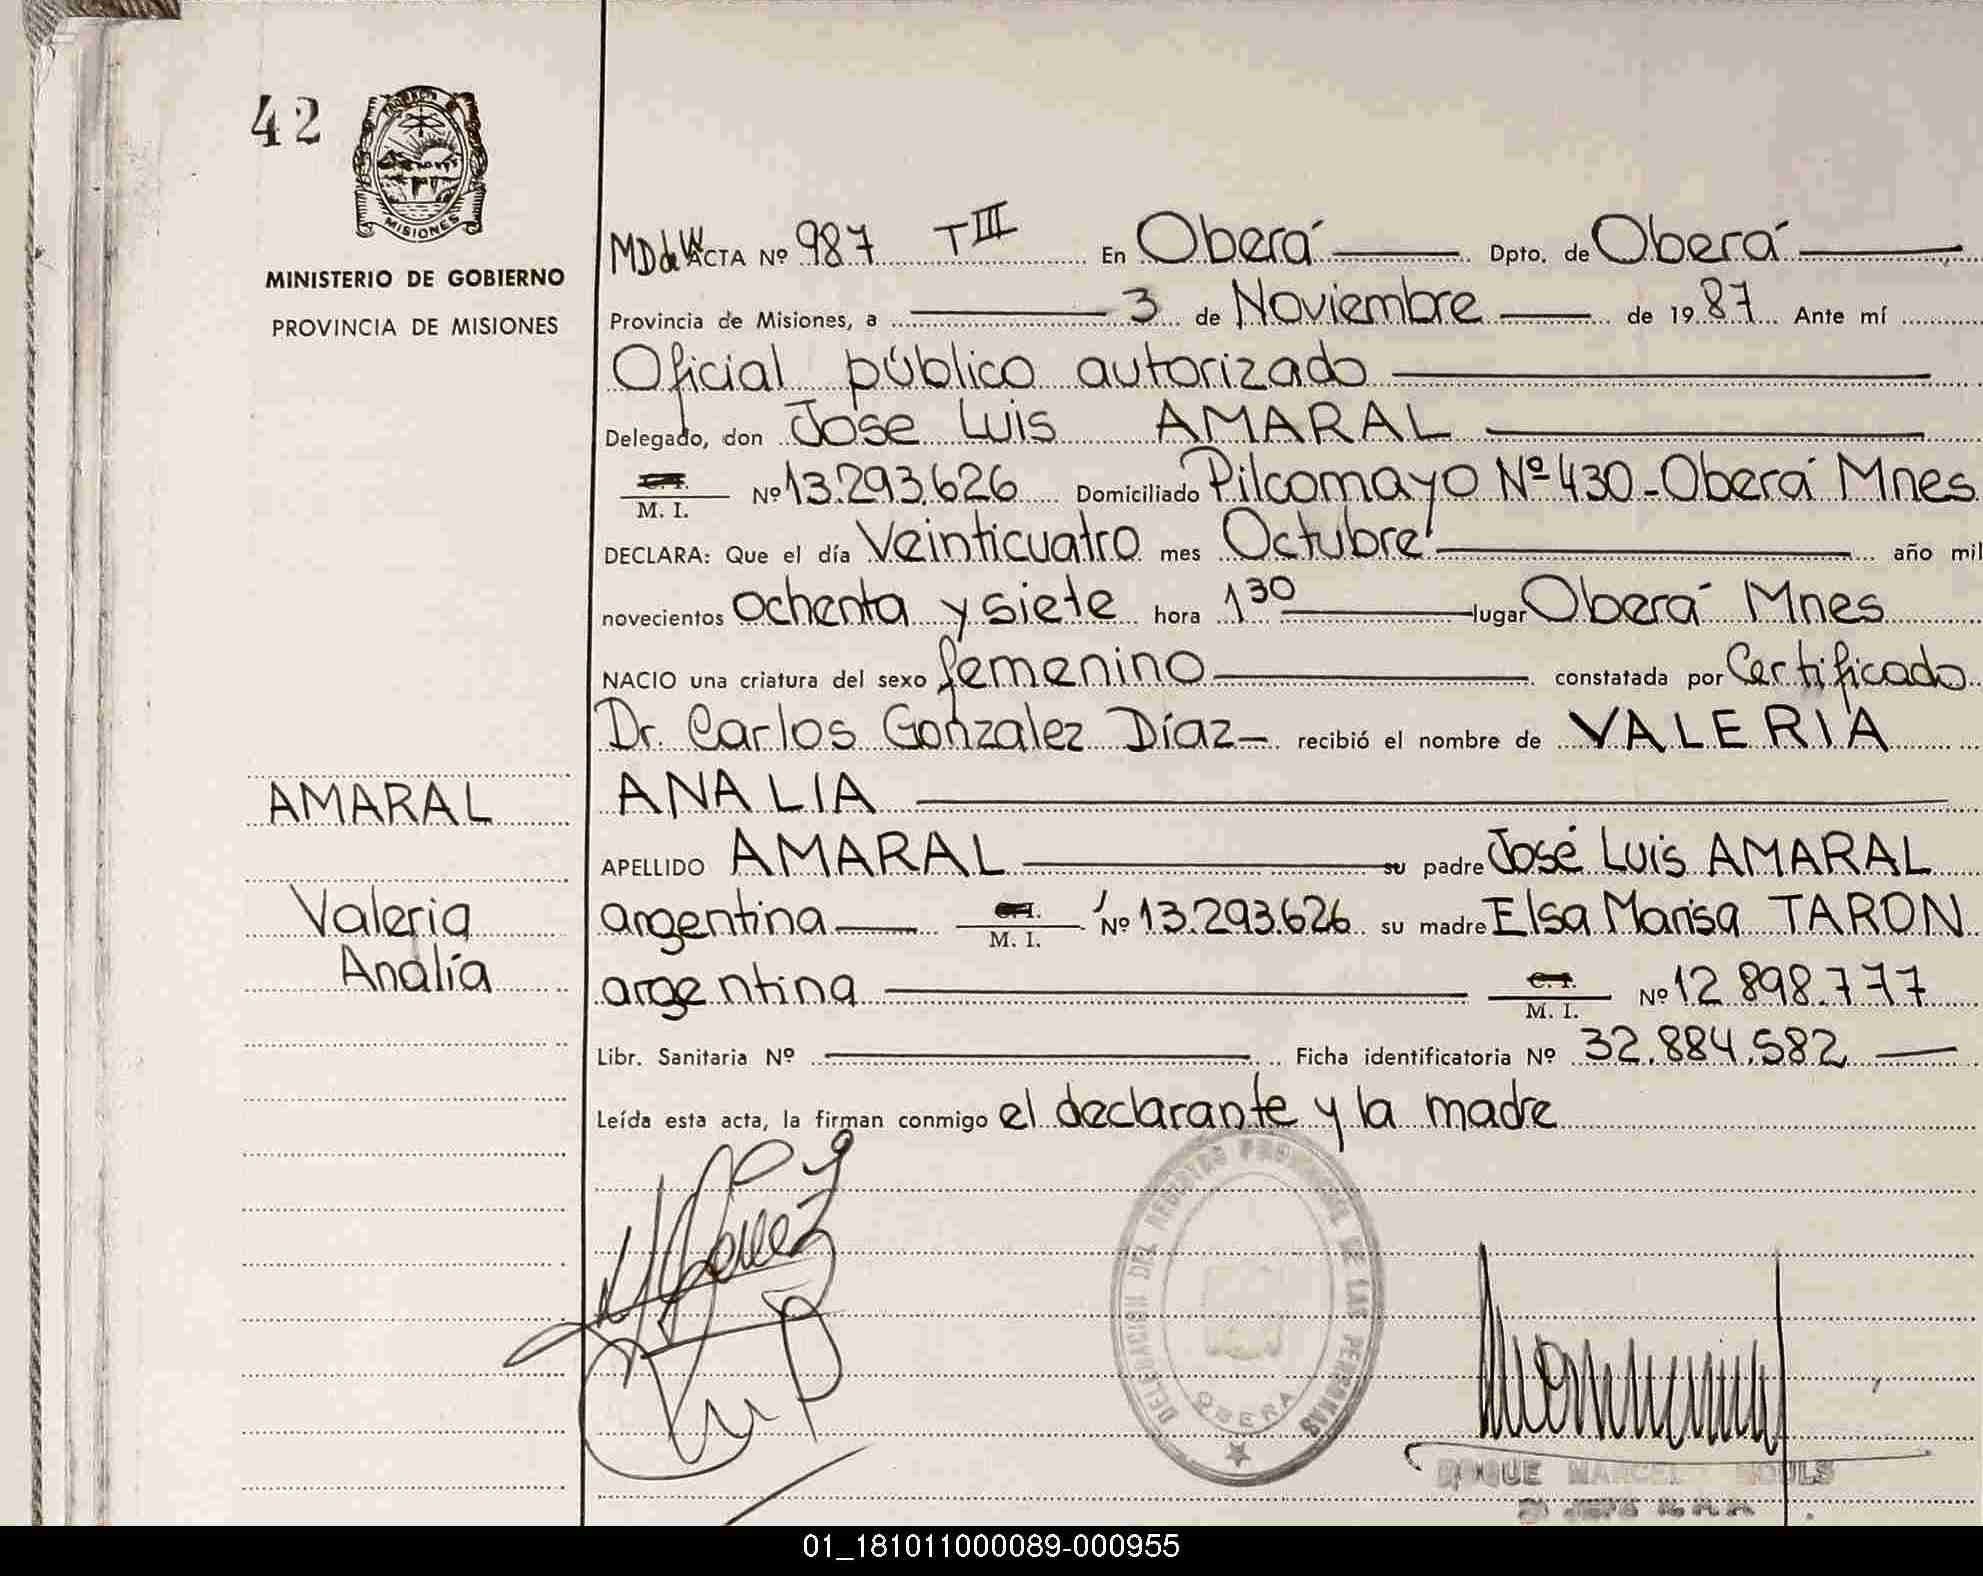 42
MISIONES
MINISTERIO DE GOBIERNO
PROVINCIA DE MISIONES
ACTA Nº 987 TIII En Oberá Dpto. de Oberá
Provincia de Misiones, a 3 de Noviembre de 1987 Ante mí
Oficial público autorizado
Delegado, don José Luis AMARAL
M. I. Nº 13.293.626 Domiciliado Pilcomayo Nº 430-Oberá Mnes
DECLARA: Que el día Veinticuatro mes Octubre año mil
novecientos ochenta y siete hora 1 30 lugar Oberá Mnes
NACIO una criatura del sexo femenino constatada por Certificado
Dr. Carlos Gonzalez Díaz- recibió el nombre de VALERIA
ANALIA
APELLIDO AMARAL su padre José Luis AMARAL
argentina M. I. Nº 13.293.626 su madre Elsa Marisa TARON
argentina C. I. M. I. Nº 12.898.777
Libr. Sanitaria Nº Ficha identificatoria Nº 32.884.582
Leída esta acta, la firman conmigo el declarante y la madre
AMARAL
Valeria
Analía
DELEGACION DEL REGISTRO PROVINCIAL DE LAS PERSONAS
OBERA
ROQUE
01_181011000089-000955